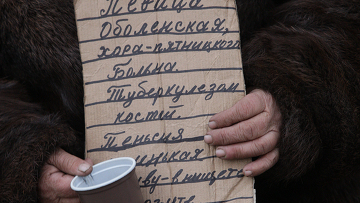 Певица
Оболенская,
хора-пятницкого
Больна
Туберкулезом
кости.
Пенсия
нькая
ву-в нищете